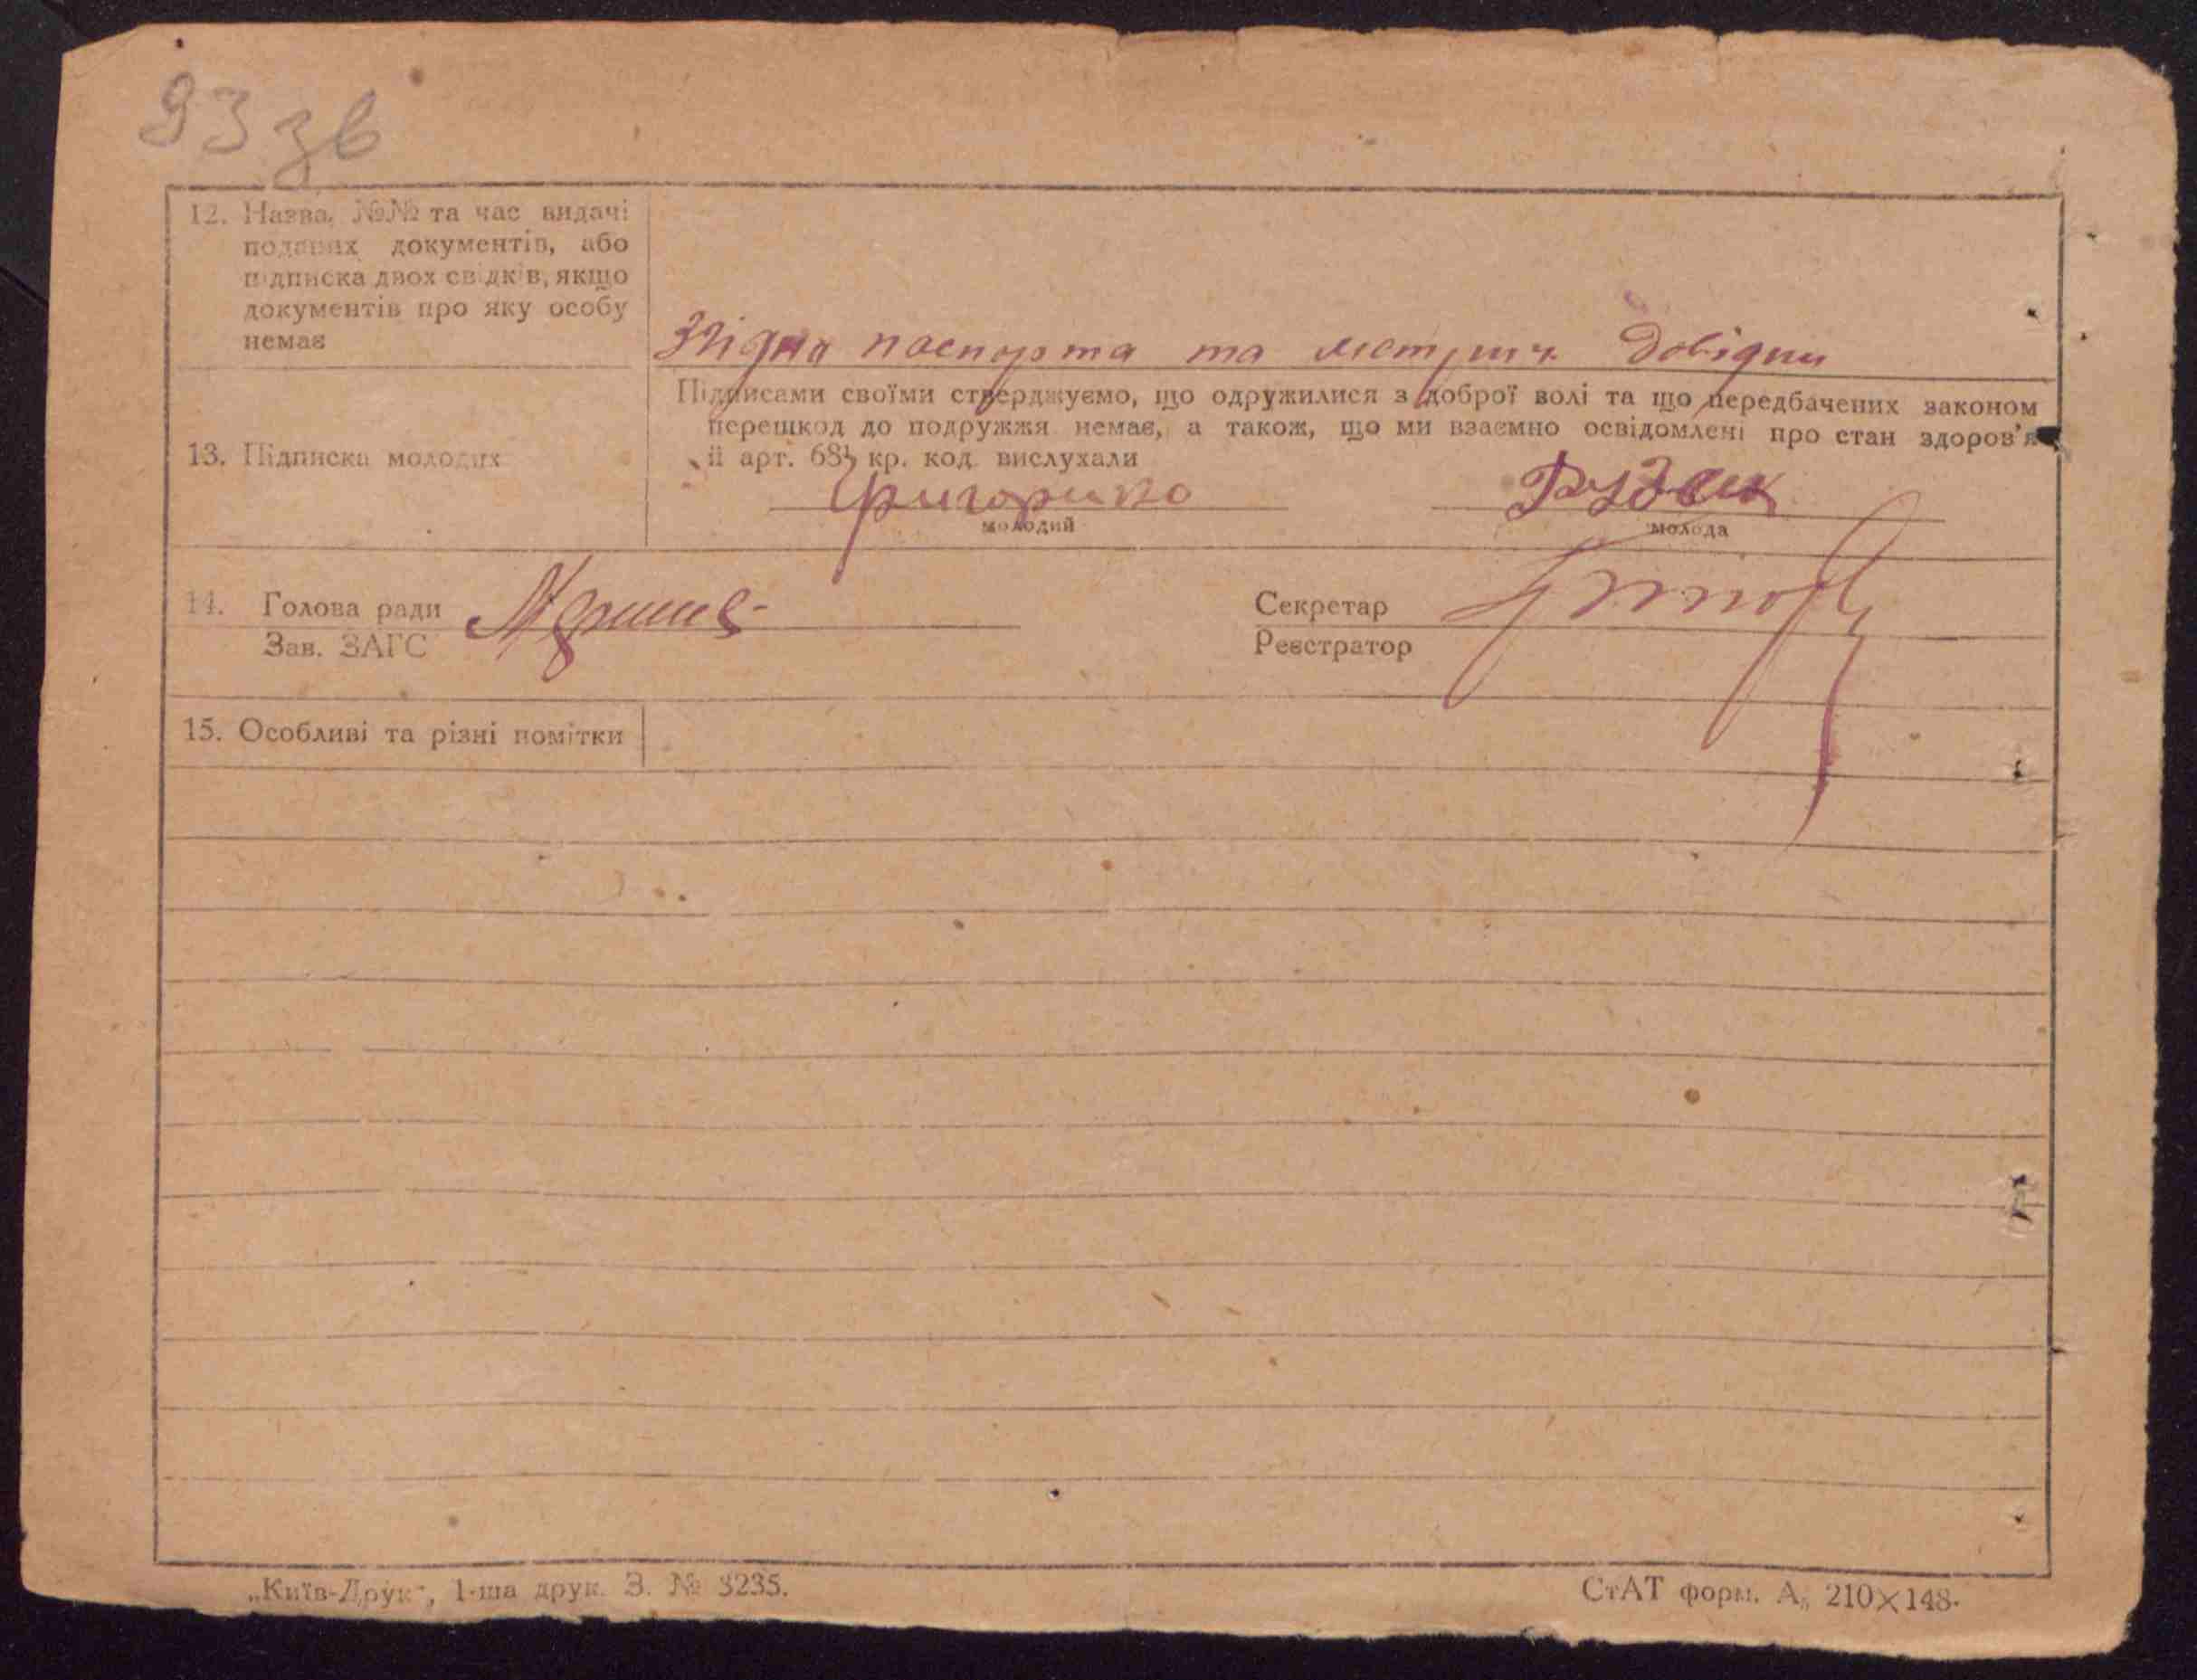 93 зв
12. Назва, №№ та час видачі
поданих документів, або
підписка двох свідків, якщо
документів про яку особу
немає
Згідно паспорта та метрич. довідки
Підписами своїми стверджуємо, що одружилися з доброї волі та що передбачених законом
перешкод до подружжя немає, а також, що ми взаємно освідомлені про стан здоров'я
13. Підписка молодих
ії арт. 68 кр. код. вислухали
Григоренко
молодий
молода
14. Голова ради
Зав. ЗАГС
Секретар
Реєстратор
15. Особливі та різні помітки
„Київ-Друк", 1-ша друк. З. № 3235.
СтАТ форм. А5 210×148.